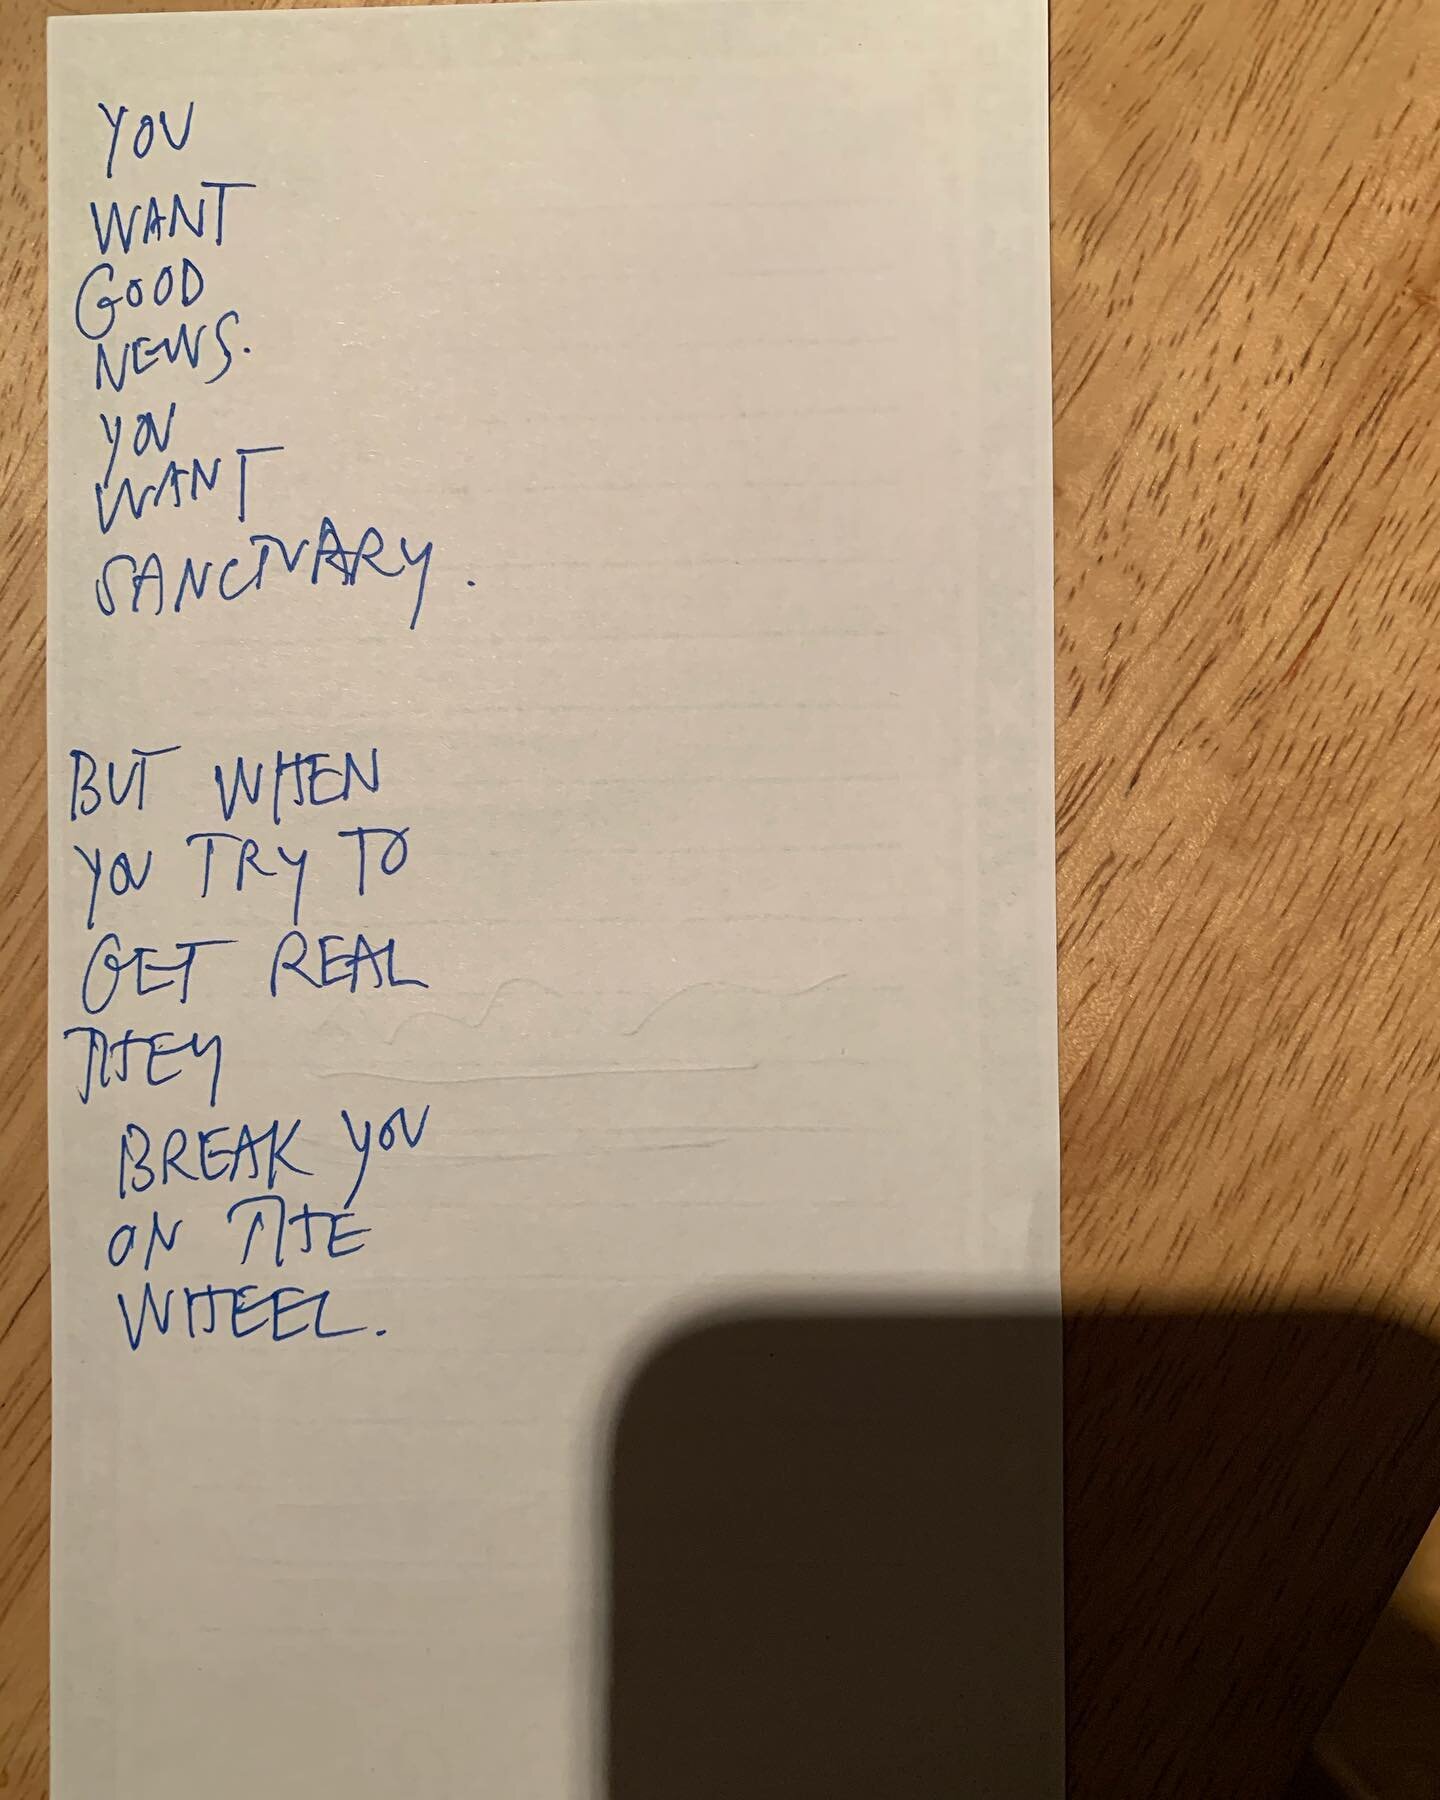 YOU
WANT
GOOD
NEWS.
YOU
WANT
SANCTUARY.
BUT WHEN
YOU TRY TO
GET REAL
THEY
BREAK YOU
ON THE
WHEEL.